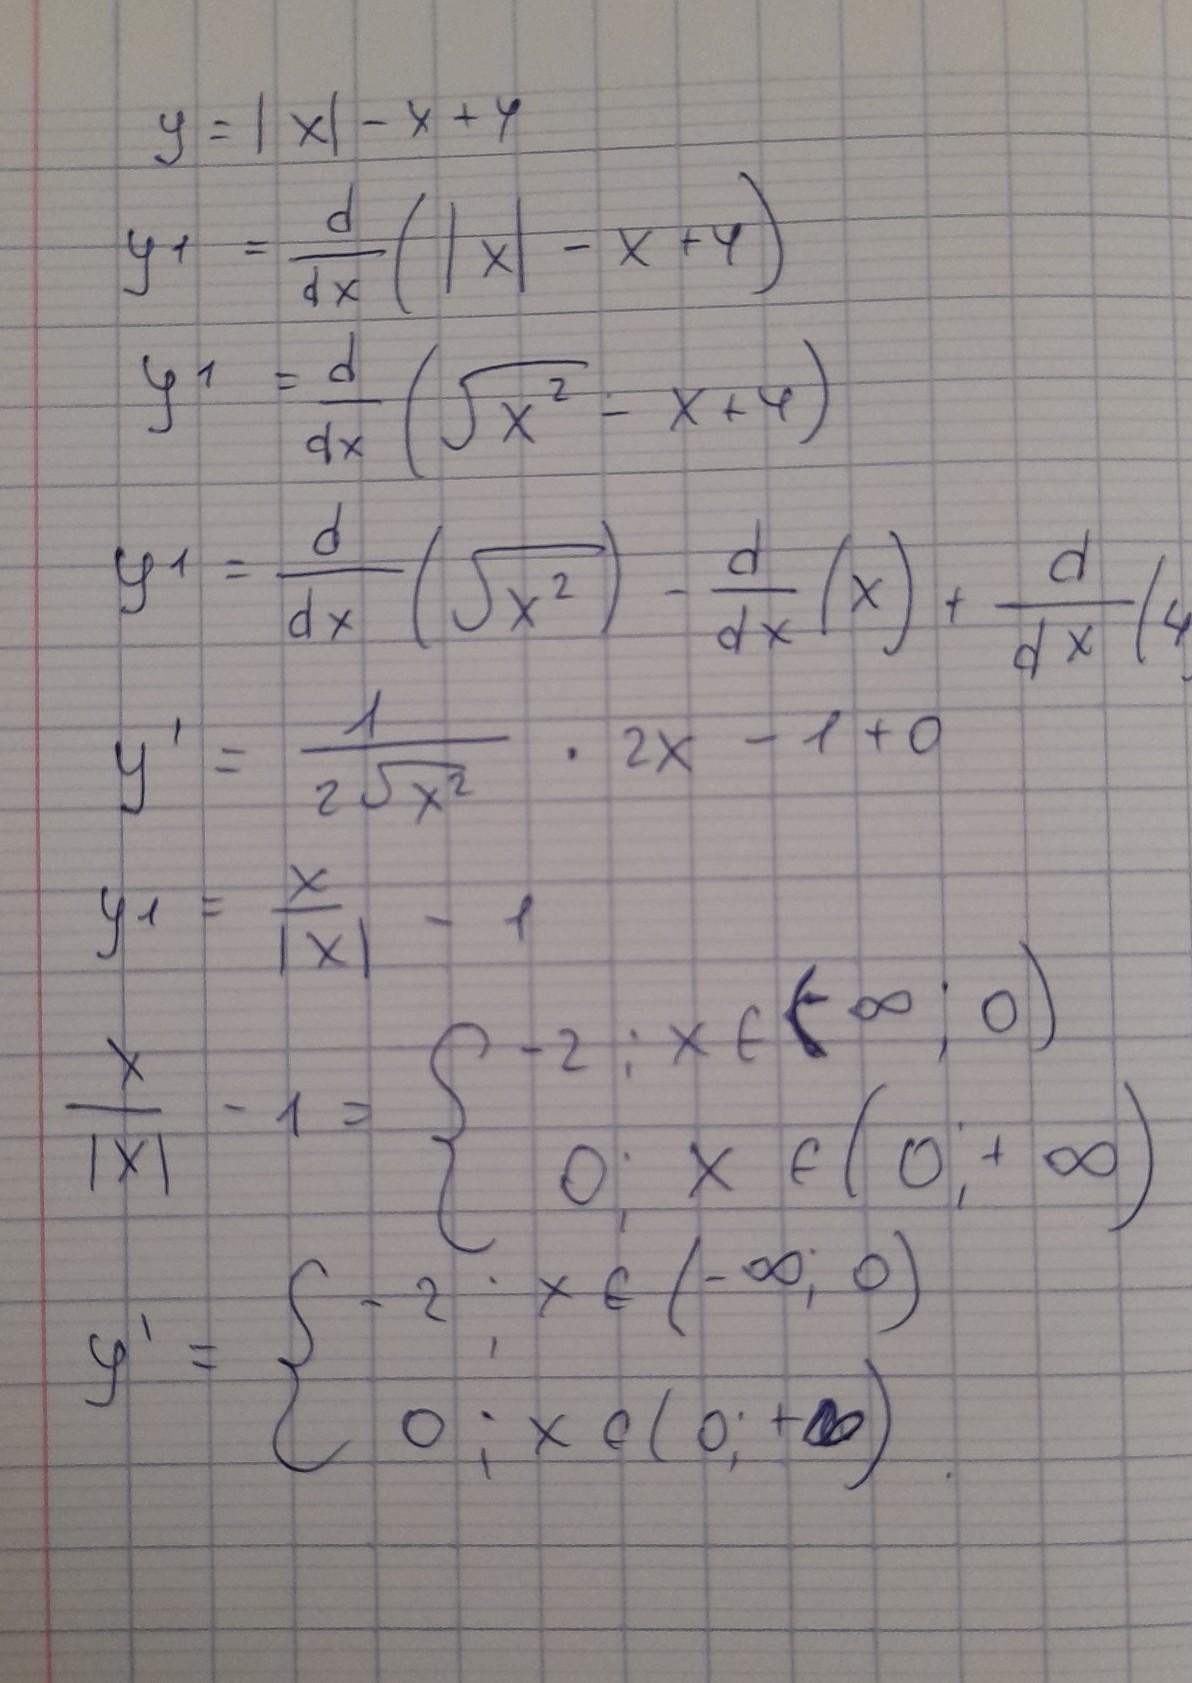 y = |x| - x + 4
y1 = d/dx (|x| - x + 4)
y1 = d/dx (√x² - x + 4)
y1 = d/dx (√x²) - d/dx (x) + d/dx (4
y' = 1/2√x² · 2x - 1 + 0
y1 = x/|x| - 1
x/|x| - 1 = { -2 ; x ∈ (-∞ ; 0)
0; x ∈ (0; +∞)
y' = { -2 ; x ∈ (-∞; 0)
0 ; x ∈ (0; +∞)